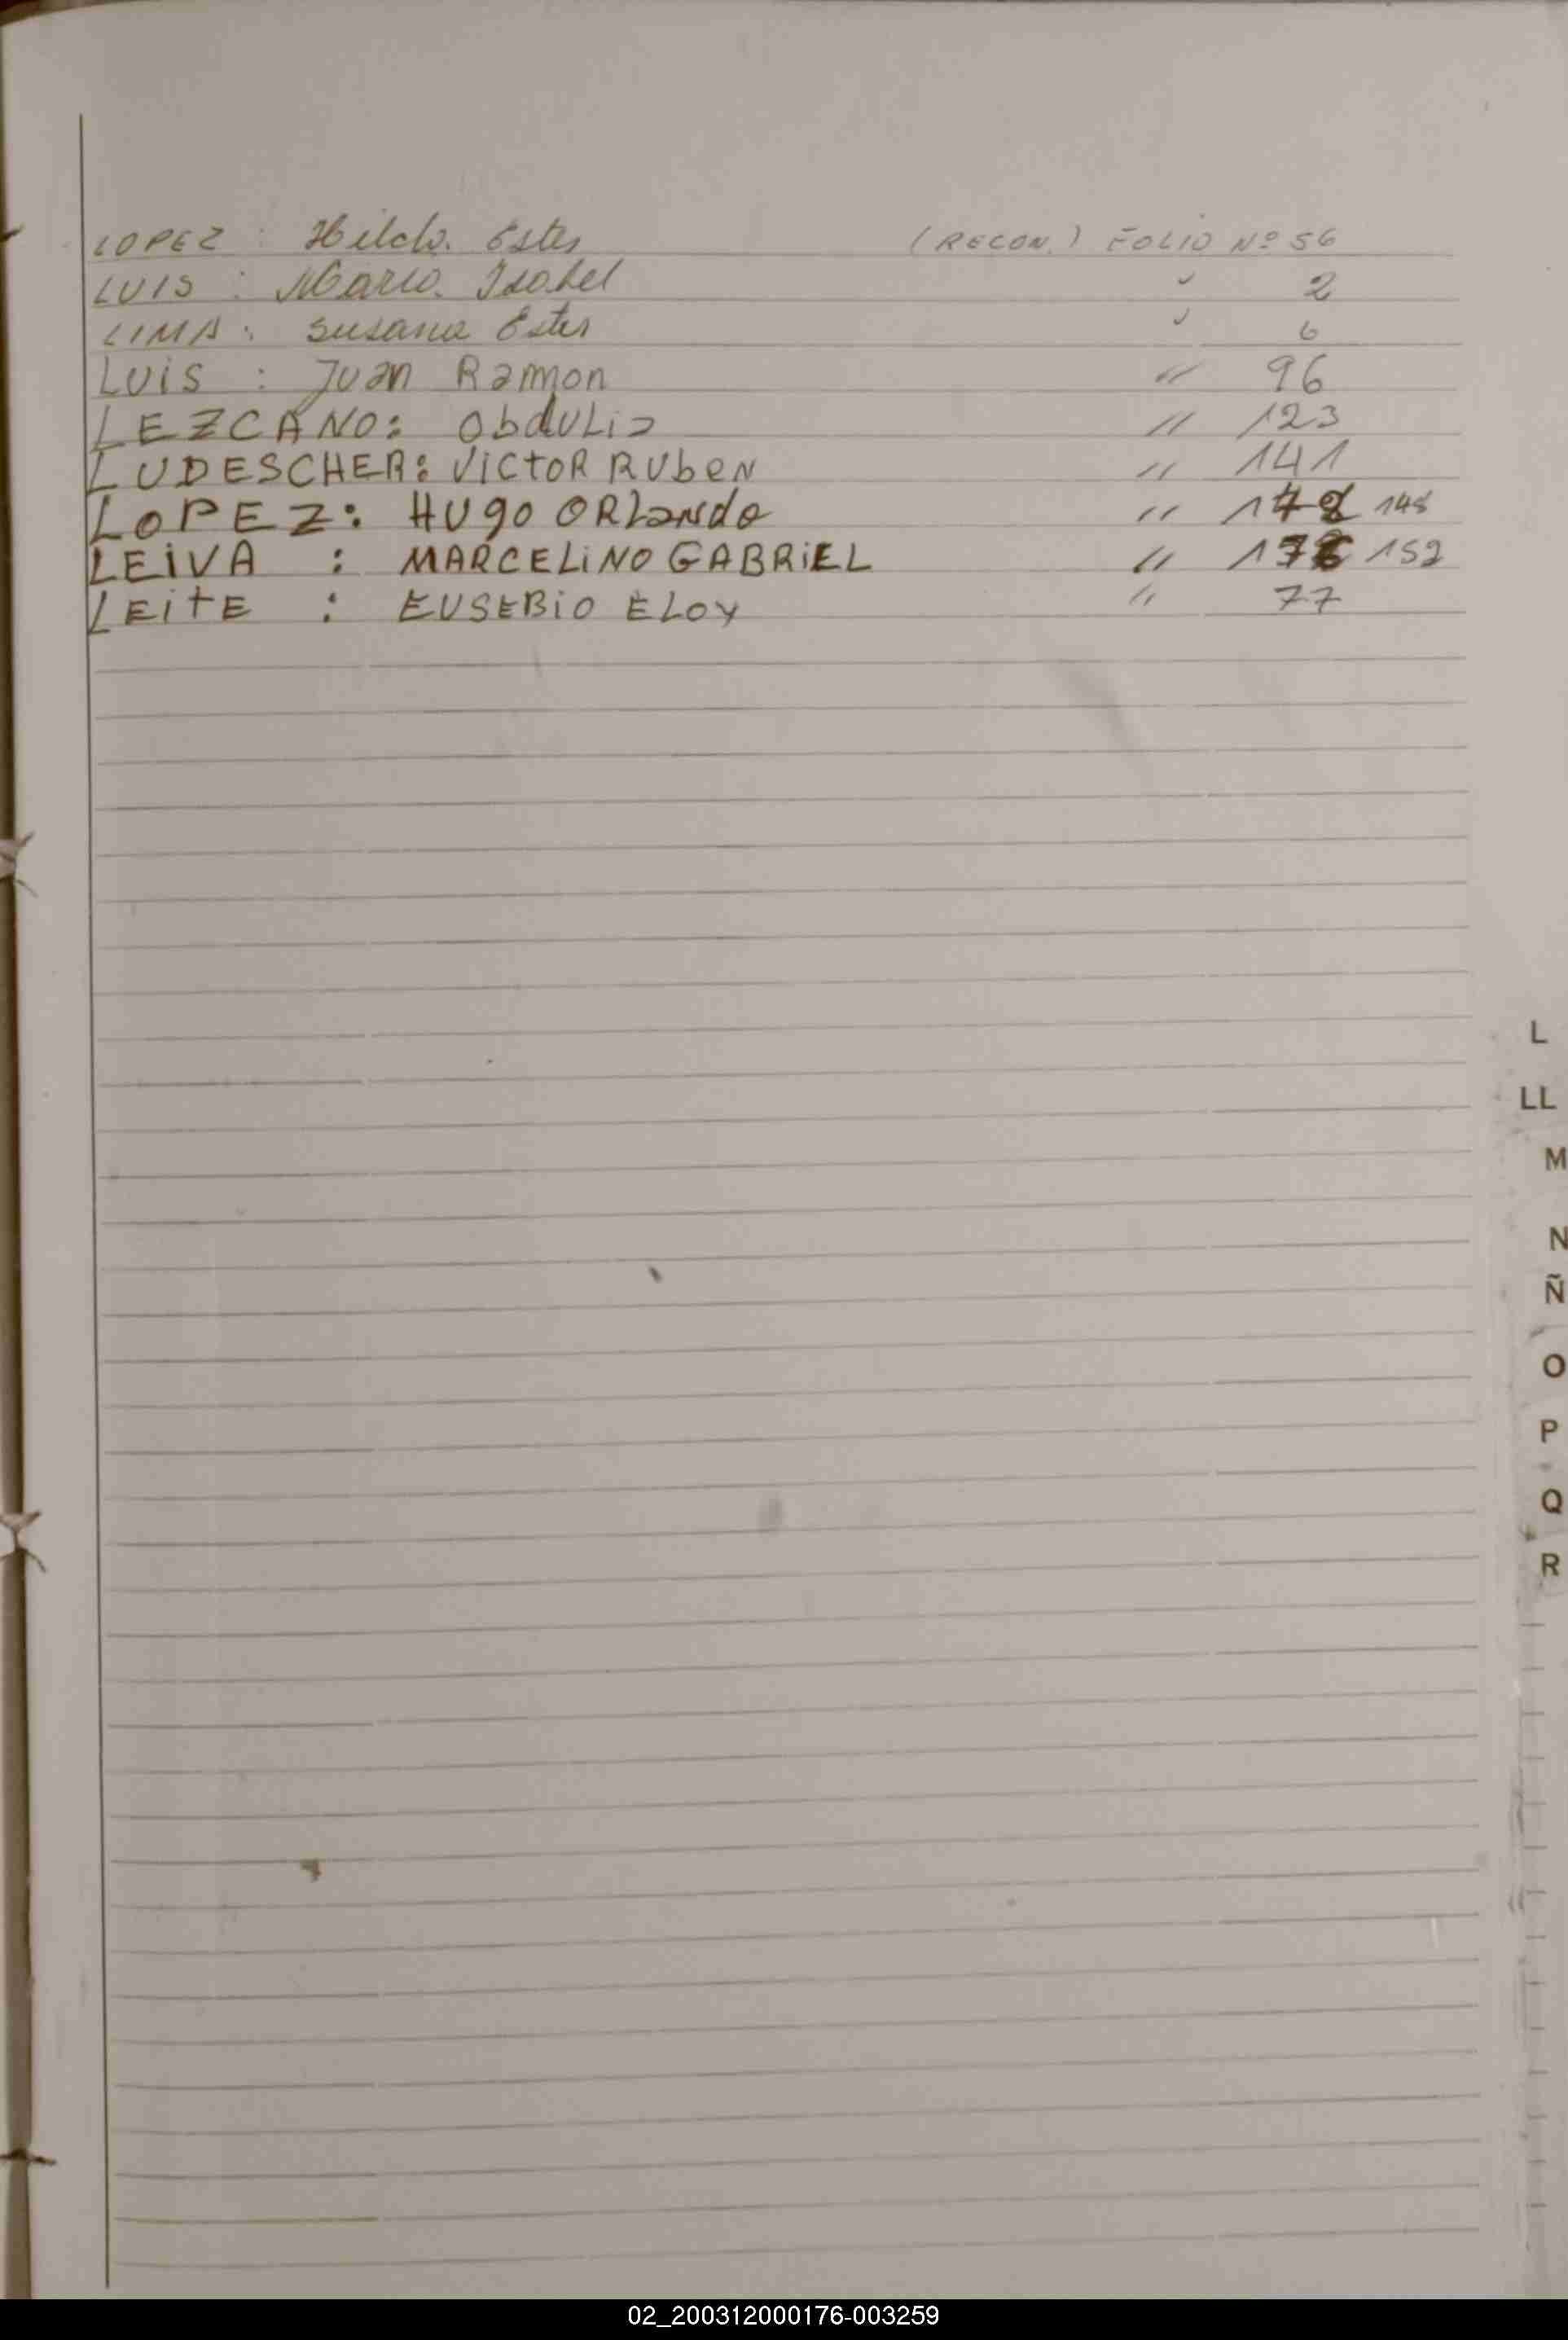 LOPEZ : Hilda Ester (RECON.) FOLIO Nº 56
LUIS : Maria Isabel " 2
LIMA : Susana Ester " 6
LUis : Juan Ramon " 96
LEZCANO: ObdULia " 123
LUDESCHER: VictoR RUbeN " 141
LOPEZ: HUgo ORLaNdo " 148
LEiVA : MARCELiNO GABRiEL " 152
LEitE : EUSEBiO ELOY " 77
L
LL
M
N
Ñ
O
P
Q
R
02_200312000176-003259